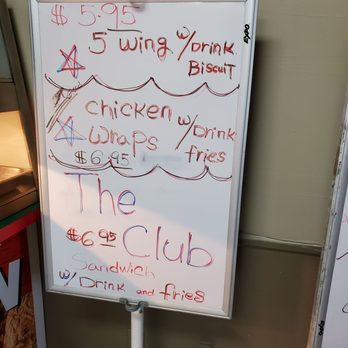 $ 5.95
5 wing w/ DRINK
BISCUIT
chicken
wraps w/ DRINK
$6.95 fries
The
$6.95 Club
Sandwich
w/ DRINK and fries
EXPO